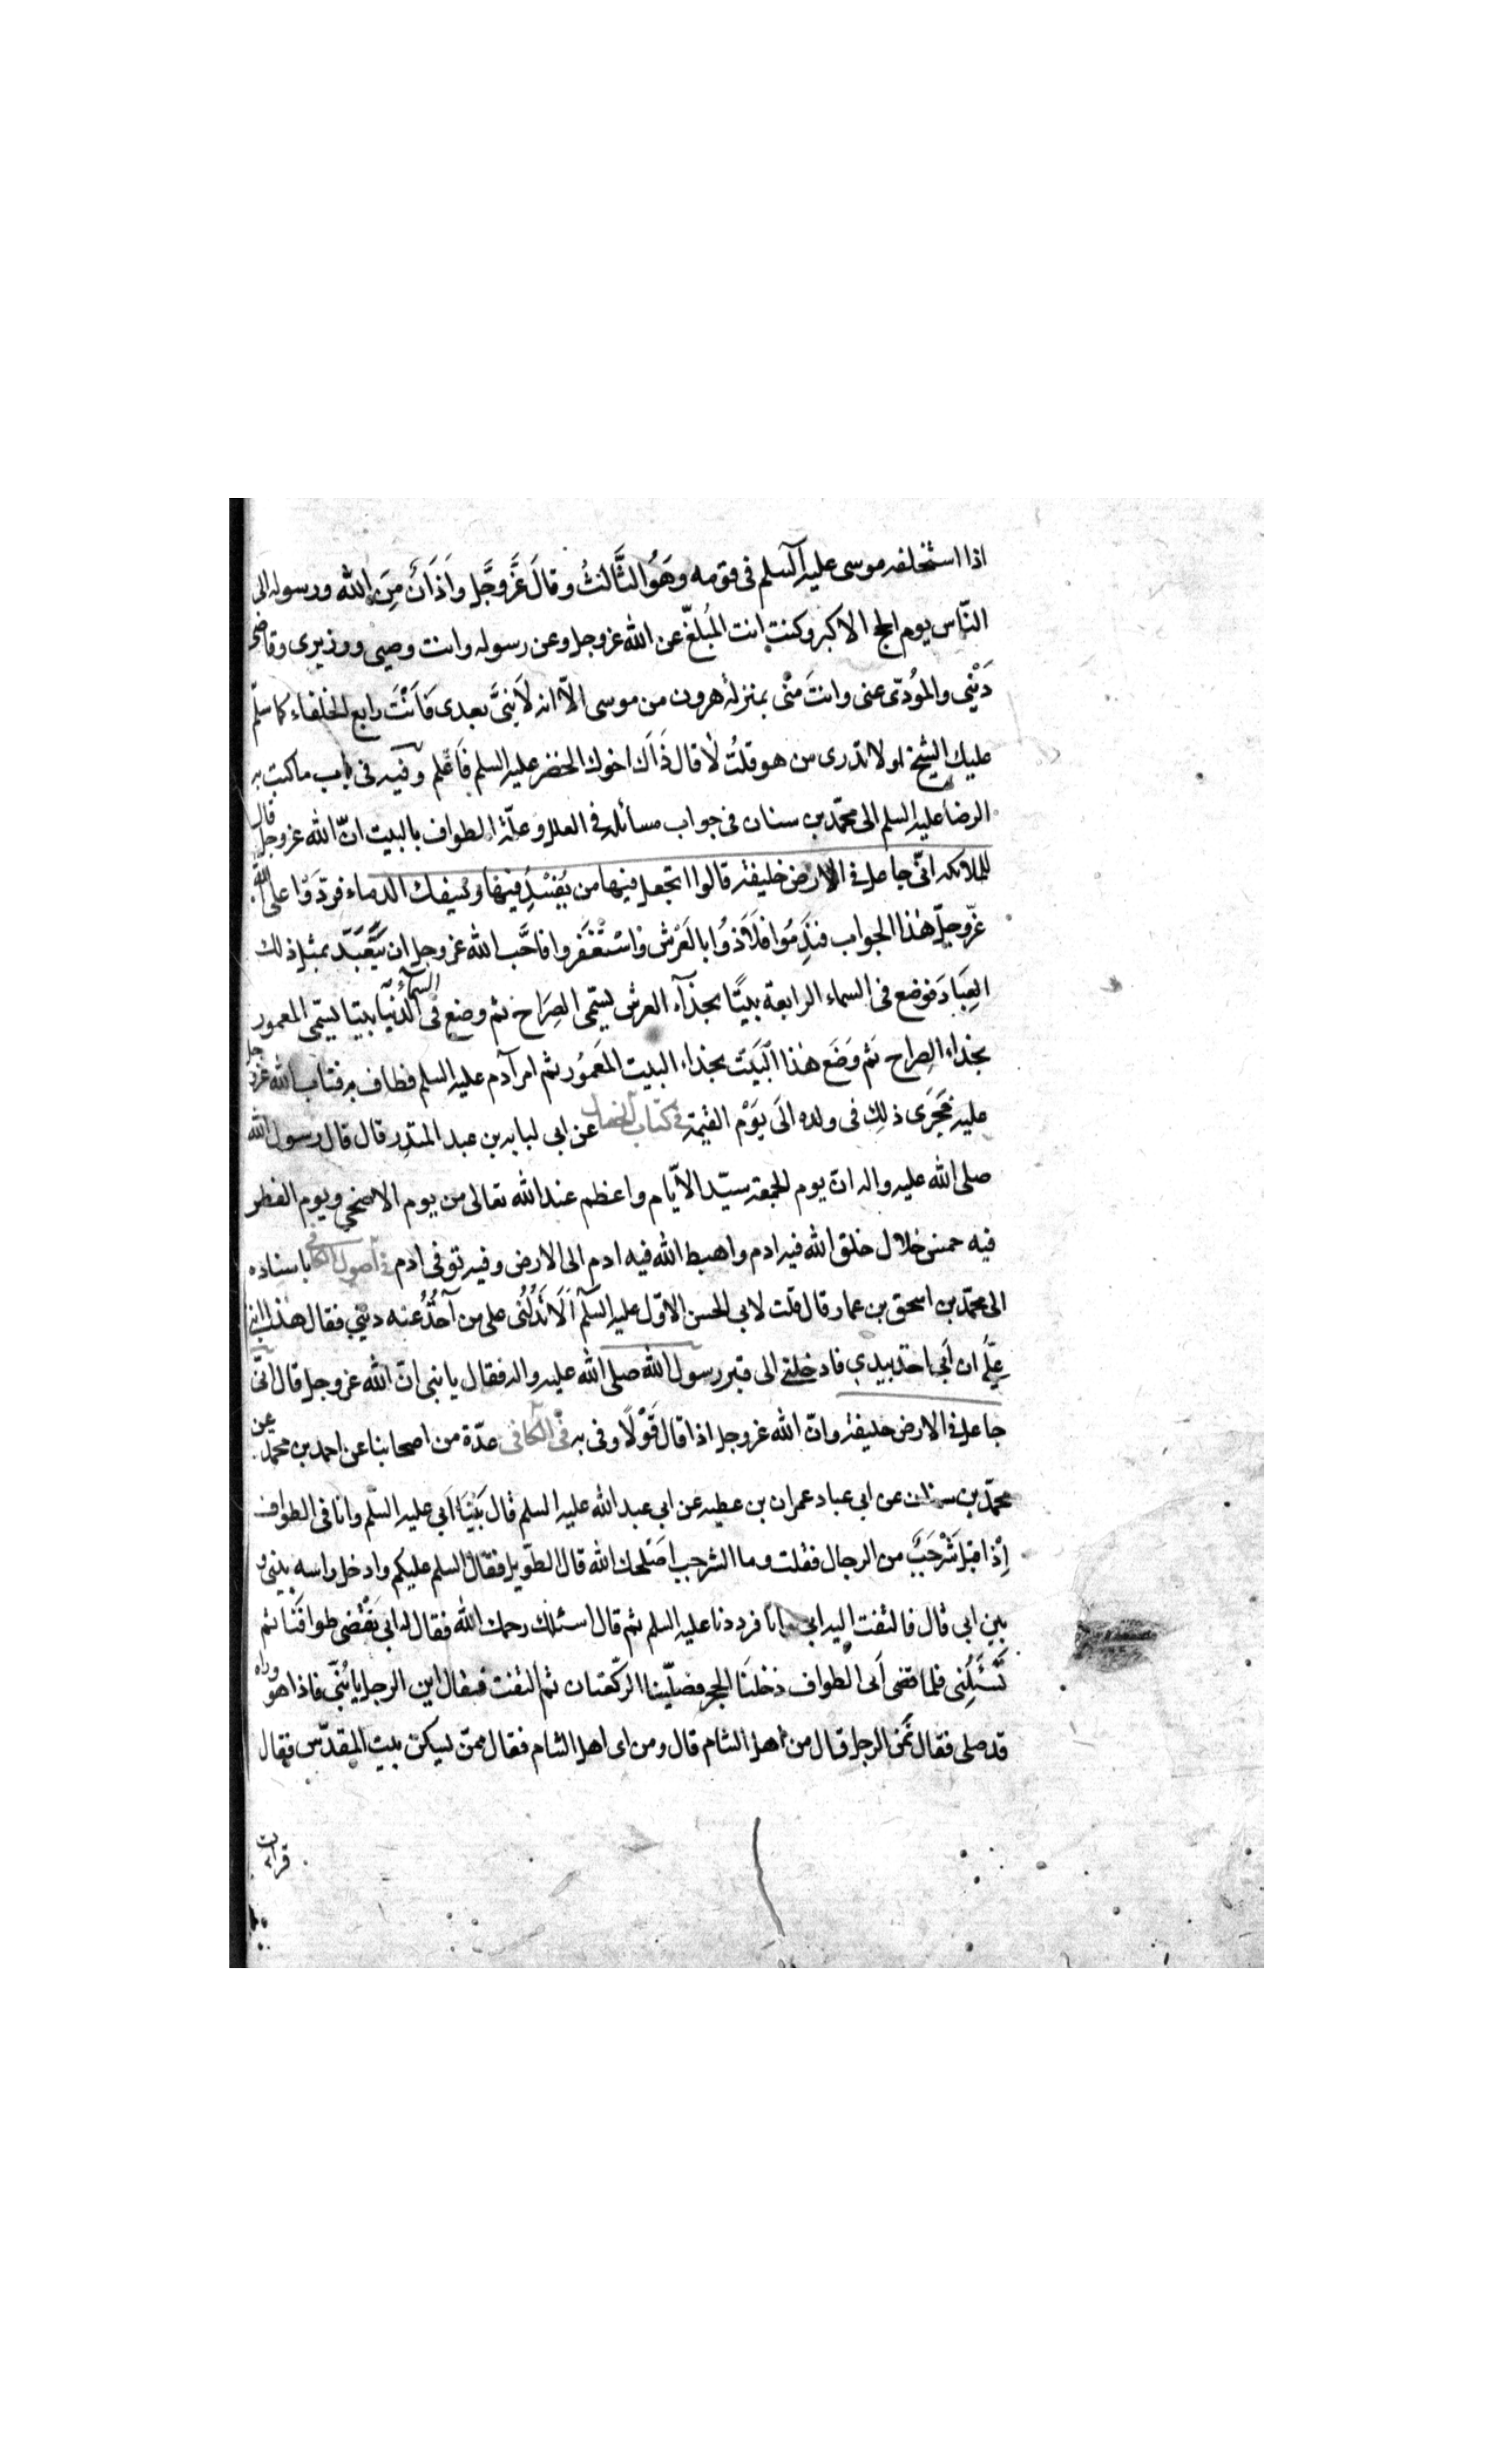 اذا استخلفه موسى عليه السلم فى قومه وهو الثالث وقال عز وجل واذان من الله ورسوله الى
الناس يوم الحج الاكبر وكنت انت المبلغ عن الله عز وجل وعن رسوله وانت وصيى ووزيرى وقاضى
دينى والمؤدى عنى وانت منى بمنزلة هرون من موسى الا انه لا نبى بعدى فانت رابع الخلفاء كما سلم
عليك الشيخ اولا تدرى من هو قلت لا قال ذاك اخوك الخضر عليه السلم فاعلم وفيه فى باب ما كتب به
الرضا عليه السلم الى محمد بن سنان فى جواب مسائله فى العلل وعلة الطواف بالبيت ان الله عز وجل قال
للملائكه انى جاعل فى الارض خليفة قالوا اتجعل فيها من يفسد فيها ويسفك الدماء فردوا على الله
عز وجل هذا الجواب فندموا فلاذوا بالعرش واستغفروا فاحب الله عز وجل ان يتعبد بمثل ذلك
العباد فوضع فى السماء الرابعة بيتا بحذآء العرش يسمى الصراح ثم وضع فى السماء الدنيا بيتا يسمى المعمور
بحذاء الصراح ثم وضع هذا البيت بحذاء البيت المعمور ثم امر آدم عليه السلم فطاف به فتاب الله عز وجل
عليه فجرى ذلك فى ولده الى يوم القيمة فى كتاب الخصال عن ابى لبابه بن عبد المنذر قال قال رسول الله
صلى الله عليه واله ان يوم الجمعة سيد الايام واعظم عند الله تعالى من يوم الاضحى ويوم الفطر
فيه خمس خلال خلق الله فيه ادم واهبط الله فيه ادم الى الارض وفيه توفى ادم فى اصول الكافى باسناده
الى محمد بن اسحق بن عمار قال قلت لابى الحسن الاول عليه السلم الا تدلنى على من آخذ عنه دينى فقال هذا ابنى
على ان ابى اخذ بيدى فادخلنى الى قبر رسول الله صلى الله عليه واله فقال يا بنى ان الله عز وجل قال انى
جاعل فى الارض خليفة وان الله عز وجل اذا قال قولا وفى به فى الكافى عدة من اصحابنا عن احمد بن محمد عن
محمد بن سنان عن ابى عباد عمران بن عطيه عن ابى عبد الله عليه السلم قال بينا ابى عليه السلم وانا فى الطواف
اذ اقبل شرجب من الرجال فقلت وما الشرجب اصلحك الله قال الطويل فقال السلم عليكم وادخل راسه بينى و
بين ابى قال فالتفت اليه ابى وانا فرددنا عليه السلم ثم قال اسئلك رحمك الله فقال له ابى نقضى طوافنا ثم
تسئلنى فلما قضى ابى الطواف دخلنا الحجر فصلينا الركعتان ثم التفت فقال اين الرجل يا بنى فاذا هو وراه
قد صلى فقال ممن الرجل قال من اهل الشام قال ومن اى اهل الشام فقال ممن يسكن بيت المقدس فقال
قرات